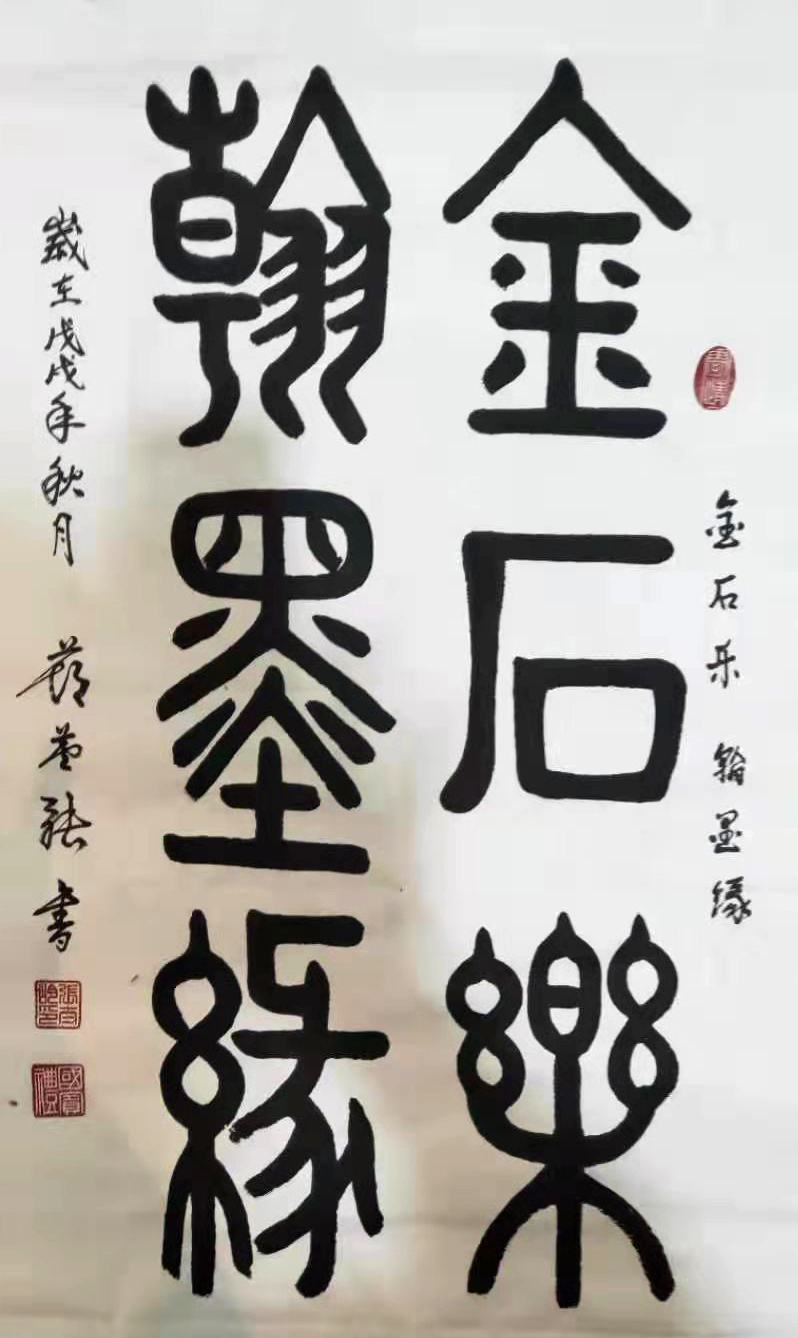 金石樂
翰墨緣
金石乐 翰墨缘
歲在戊戌年秋月
書